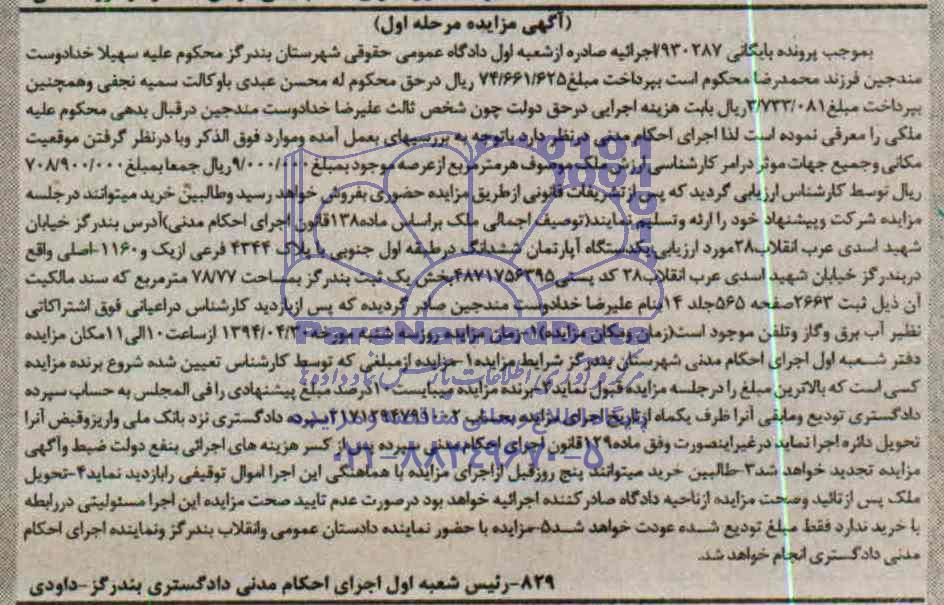 (آگهی مزایده مرحله اول)
بموجب پرونده بایگانی ۷۹۳۰۲۸۷اجرائیه صادره ازشعبه اول دادگاه عمومی حقوقی شهرستان بندرگز محکوم علیه سهیلا خدادوست
مندجین فرزند محمدرضا محکوم است بپرداخت مبلغ۷۴/۶۶۱/۶۲۵ ریال درحق محکوم له محسن عبدی باوکالت سمیه نجفی وهمچنین
بپرداخت مبلغ۳/۷۳۳/۰۸۱ریال بابت هزینه اجرایی درحق دولت چون شخص ثالث علیرضا خدادوست مندجین درقبال بدهی محکوم علیه
ملکی را معرفی نموده است لذا اجرای احکام مدنی درنظر دارد باتوجه به بررسیهای بعمل آمده وموارد فوق الذکر وبا درنظر گرفتن موقعیت
مکانی وجمیع جهات موثر درامر کارشناسی ارزش ملک موصوف هرمترمربع ازعرصه موجود بمبلغ ۹/۰۰۰/۰۰۰ریال جمعا بمبلغ ۷۰۸/۹۰۰/۰۰۰
ریال توسط کارشناس ارزیابی گردید که پس از تشریفات قانونی ازطریق مزایده حضوری بفروش خواهد رسید وطالبین خرید میتوانند درجلسه
مزایده شرکت وپیشنهاد خود را ارئه وتسلیم نمایند(توصیف اجمالی ملک براساس ماده۱۳۸قانون اجرای احکام مدنی)آدرس بندرگز خیابان
شهید اسدی عرب انقلاب۲۸مورد ارزیابی یکدستگاه آپارتمان ششدانگ درطبقه اول جنوبی با پلاک ۴۳۴۴ فرعی ازیک و۱۱۶۰-اصلی واقع
دربندرگز خیابان شهید اسدی عرب انقلاب۲۸ کد پستی۴۸۷۱۷۵۶۳۹۵بخش یک ثبت بندرگز بمساحت ۷۸/۷۷ مترمربع که سند مالکیت
آن ذیل ثبت ۲۶۶۳صفحه ۵۶۵جلد ۱۴بنام علیرضا خدادوست مندجین صادر گردیده که پس ازبازدید کارشناس دراعیانی فوق اشتراکاتی
نظیر آب برق وگاز وتلفن موجود است(زمان ومکان مزایده)۱-زمان مزایده روز سه شنبه مورخه ۱۳۹۴/۰۴/۳۰ ازساعت۱۰الی۱۱مکان مزایده
دفتر شعبه اول اجرای احکام مدنی شهرستان بندرگز شرایط مزایده۱-مزایده ازمبلغی که توسط کارشناس تعیین شده شروع برنده مزایده
کسی است که بالاترین مبلغ را درجلسه مزایده قبول نماید۲-برنده مزایده میبایست۱۰درصد مبلغ پیشنهادی را فی المجلس به حساب سپرده
دادگستری تودیع ومابقی آنرا ظرف یکماه ازتاریخ اجرای مزایده بحساب ۲۱۷۱۲۹۴۷۹۱۰۰۲سپرده دادگستری نزد بانک ملی واریزوقبض آنرا
تحویل دائره اجرا نماید درغیراینصورت وفق ماده۱۲۹قانون اجرای احکام مدنی سپرده پس از کسر هزینه های اجرائی بنفع دولت ضبط وآگهی
مزایده تجدید خواهد شد۳-طالبین خرید میتوانند پنج روزقبل ازاجرای مزایده با هماهنگی این اجرا اموال توقیفی رابازدید نماید۴-تحویل
ملک پس از تائید وصحت مزایده ازناحیه دادگاه صادر کننده اجرائیه خواهد بود درصورت عدم تایید صحت مزایده این اجرا مسئولیتی دررابطه
با خرید ندارد فقط مبلغ تودیع شده عودت خواهد شد۵-مزایده با حضور نماینده دادستان عمومی وانقلاب بندرگز ونماینده اجرای احکام
مدنی دادگستری انجام خواهد شد.
۸۲۹-رئیس شعبه اول اجرای احکام مدنی دادگستری بندرگز-داودی
ParsNamadData
۰۲۱-۸۸۳۴۹۶۷۰-۵